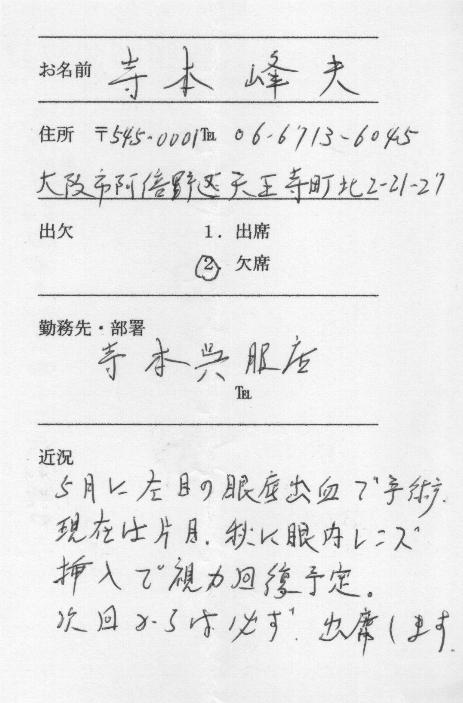 お名前 寺本 峰夫
住所 〒545-0001 TEL 06-6713-6045
大阪市阿倍野区天王寺町北2-21-27
出欠 1. 出席
2. 欠席
勤務先・部署
寺本呉服店
TEL
近況
5月に左目の眼底出血で手術.
現在は片目.秋に眼内レンズ
挿入で視力回復予定。
次回からは必ず.出席します.